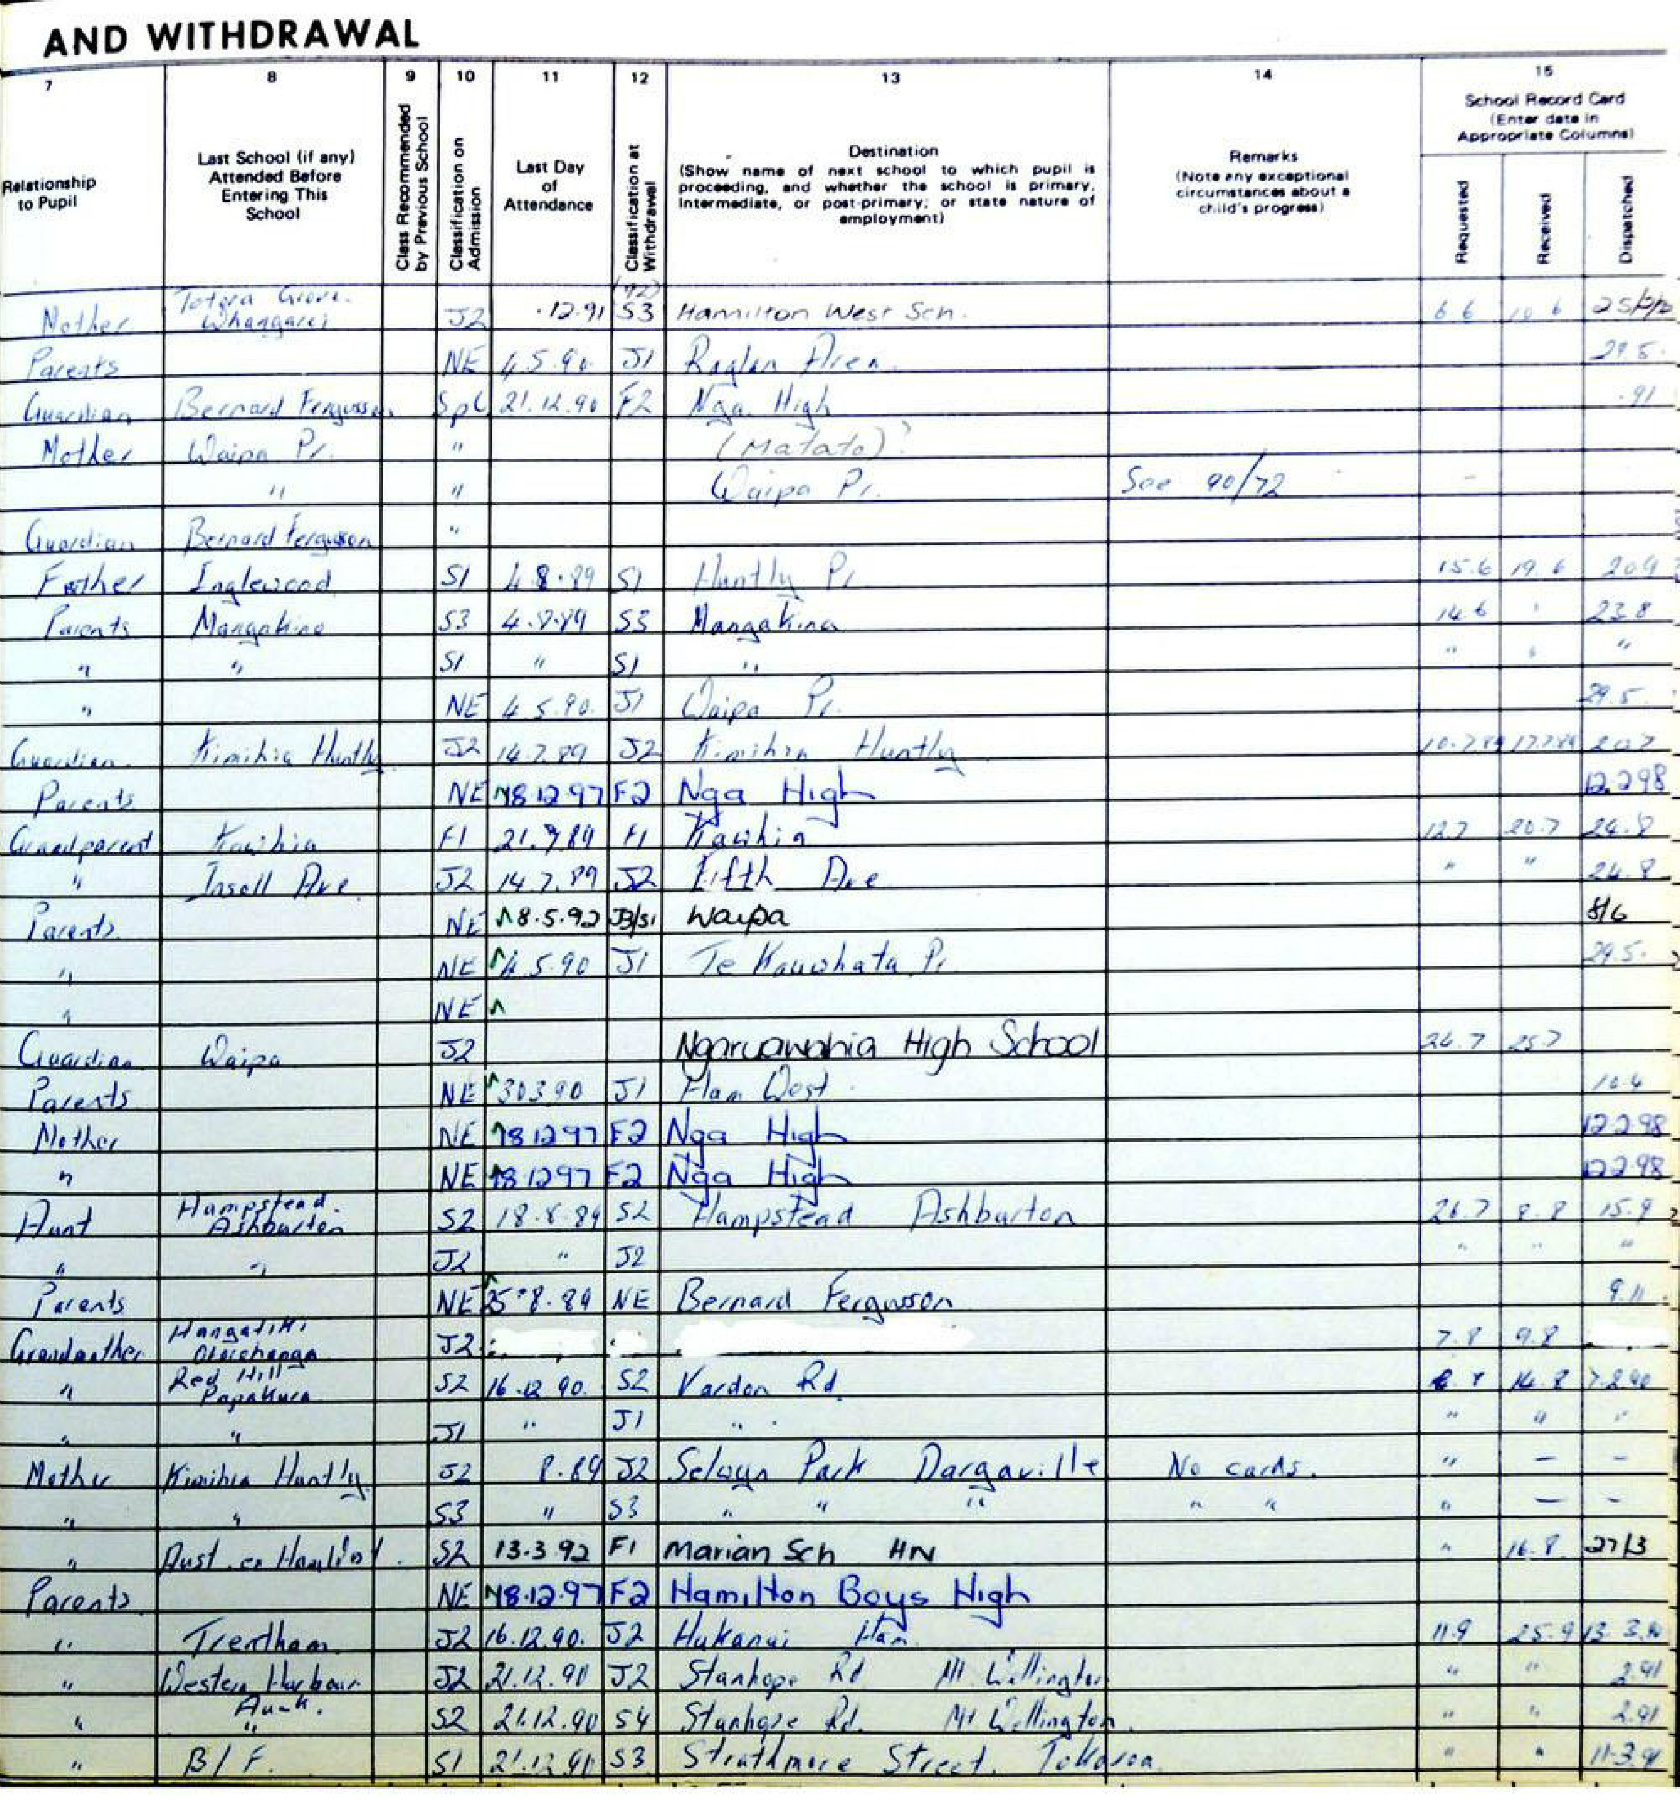 AND WITHDRAWAL
7 8 9 10 11 12 13 14 15
Relationship to Pupil
Last School (if any) Attended Before Entering This School
Class Recommended by Previous School
Classification on Admission
Last Day of Attendance
Classification at Withdrawal
Destination
(Show name of next school to which pupil is proceeding, and whether the school is primary, Intermediate, or post-primary; or state nature of employment)
Remarks
(Note any exceptional circumstances about a child's progress)
School Record Card
(Enter date in Appropriate Columns)
Requested
Received
Dispatched
Mother Totara Grove. Whangarei J2 .12.91 (92) S3 Hamilton West Sch. 6.6
Parents NE 4.5.90. J1 Raglan Area. 29.5.
Guardian Bernard Fergusson Spc 21.12.90 F2 Nga. High .91
Mother Waipa Pr. " (Matata)?
" " Waipa Pr. See 90/72 -
Guardian Bernard Ferguson "
Father Inglewood S1 4.8.89 S1 Huntly Pr. 15.6 19.6 20.9
Parents Mangakino S3 4.8.89 S3 Mangakino 14.6 23.8
" " S1 " S1 " " " "
" NE 4.5.90. J1 Waipa Pr. 29.5.
Guardian. Kimihia Huntly J2 14.7.89 J2 Kimihia Huntly 10.7.89 17.7.89 20.7
Parents NE 18.12.97 F2 Nga High 12.2.98
Grandparent Kawhia F1 21.7.89 F1 Kawhia 12.7 20.7 24.8
" Insoll Ave. J2 14.7.89 J2 Fifth Ave " " 24.8
Parents NE 8.5.92 J3/S1 Waipa 8/6
" NE 4.5.90 J1 Te Kauwhata Pr. 29.5.
" NE
Guardian Waipa J2 Ngaruawahia High School 24.7 25.7
Parents NE 30.3.90 J1 Ham West. 10.4
Mother NE 18.12.97 F2 Nga High 12.2.98
" NE 18.12.97 F2 Nga High 12.2.98
Aunt Hampstead. Ashburton S2 18.8.89 S2 Hampstead Ashburton 26.7 8.8 15.9
" " J2 " J2 " " "
Parents NE 25.8.89 NE Bernard Fergusson 9.11
Grandmother Hangatiki J2 7.8 9.8
" Red Hill Papakura S2 16.12.90. S2 Vardon Rd. 14.8 7.2.90
" " J1 " J1 " " " "
Mother Kimihia Huntly J2 8.89 J2 Selwyn Park Dargaville No cards. " — -
" " S3 " S3 " " " " " " — -
" S2 13.3.92 F1 Marian Sch HN " 16.8. 27/3
Parents NE 18.12.97 F2 Hamilton Boys High
" Trentham. J2 16.12.90. J2 Hukanui Ham. 11.9 25.9
" Western Harbour Auck. J2 21.12.90 J2 Stanhope Rd Mt Wellington " " 2.91
" " S2 21.12.90 S4 Stanhope Rd. Mt Wellington. " " 2.91
" B/F. S1 21.12.90 S3 Strathmore Street. Tokoroa. " " 11.3.91